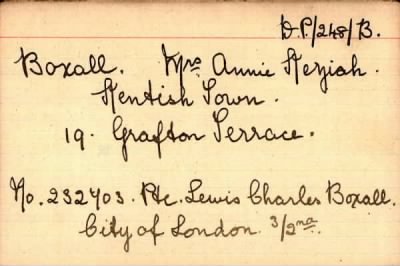 D.P./248/B.
Boxall. Mrs Annie Keziah.
Kentish Town.
19. Grafton Terrace.
No. 232403. Pte. Lewis Charles Boxall.
City of London. 3/2nd.